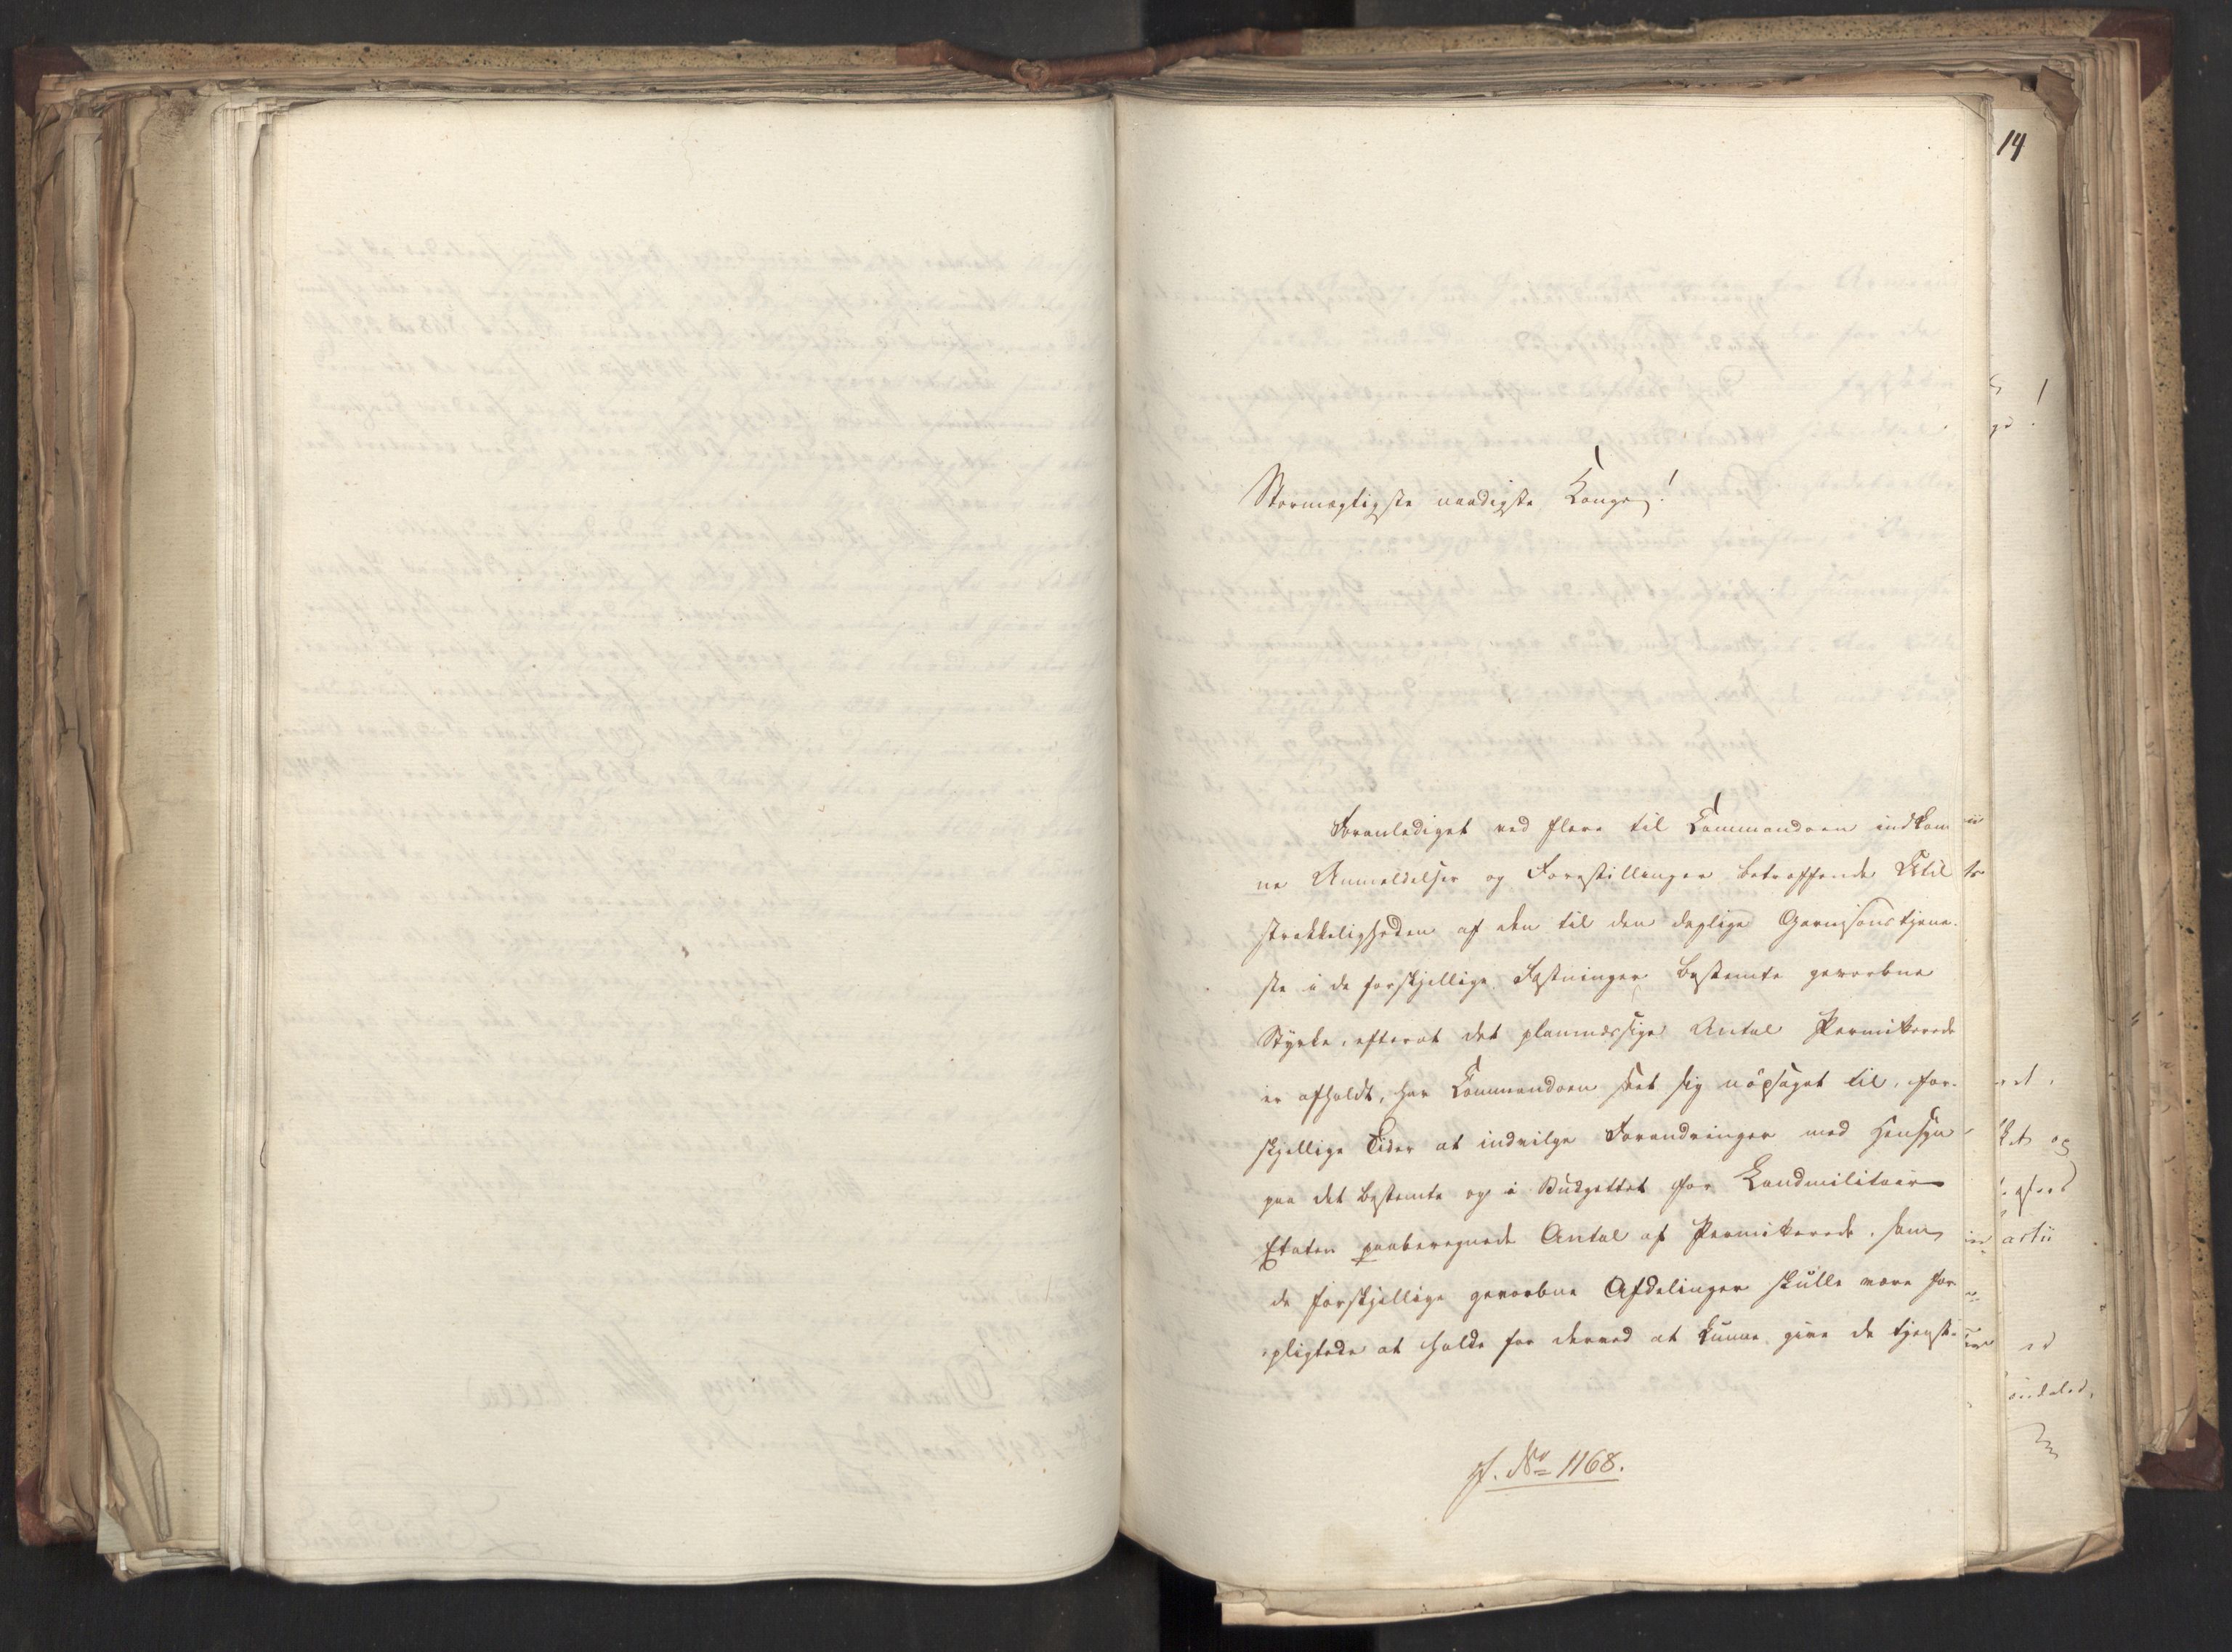 14
Stormægtigste naadigste Konge!
Foranlediget ved flere til Commandoen indkom
ne Anmeldelser og Forestillinger betræffende Util
strækkeligheden af den til den daglige Garnisonstjene-
ste i de forskjellige Fæstninger bestemte gevorbne
Styrke, efterat det planmæssige Antal Permitterede
er afholdt, har Commandoen seet sig nödsaget til, for-
skjellige Tider at indvilge Forandringer med Hensyn
paa det bestemte og i Budgettet for Landmilitair
Etaten paaberegnede Antal af Permitterede, som
de forskjellige gevorbne Afdelinger skulle være for
pligtede at holde for derved at kunne give de tjenst-
J. No 1168.